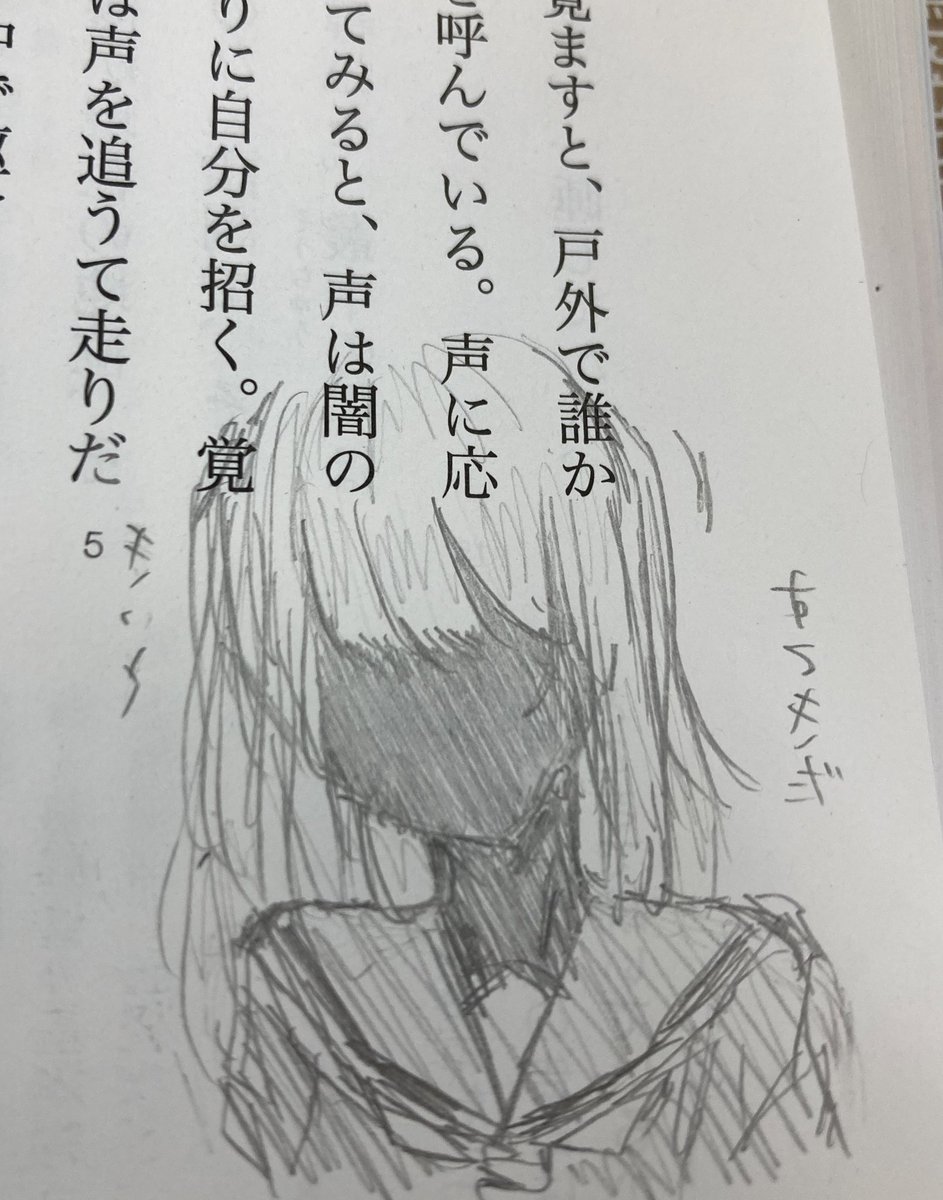 覚ますと、戸外で誰か
呼んでいる。声に応
てみると、声は闇の
りに自分を招く。覚
は声を追うて走りだ
5